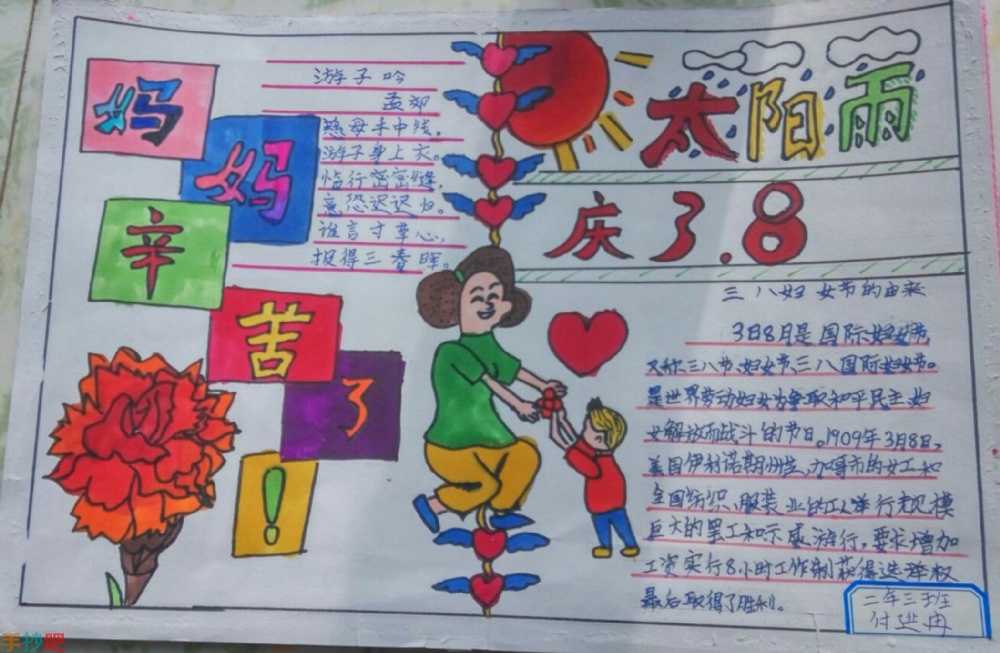 妈
妈
辛
苦
了
!
游子吟
孟郊
慈母手中线,
游子身上衣。
临行密密缝,
意恐迟迟归。
谁言寸草心,
报得三春晖。
太阳雨
庆 3.8
三八妇女节的由来
3月8月是国际妇女节,
又称三八节、妇女节、三八国际妇女节。
是世界劳动妇女为争取和平民主、妇
女解放而战斗的节日。1909年3月8日,
美国伊利诺斯州芝加哥市的女工和
全国纺织、服装业的工人举行规模
巨大的罢工和示威游行,要求增加
工资实行8小时工作制获得选举权
最后取得了胜利。
二年三班
付
手抄吧